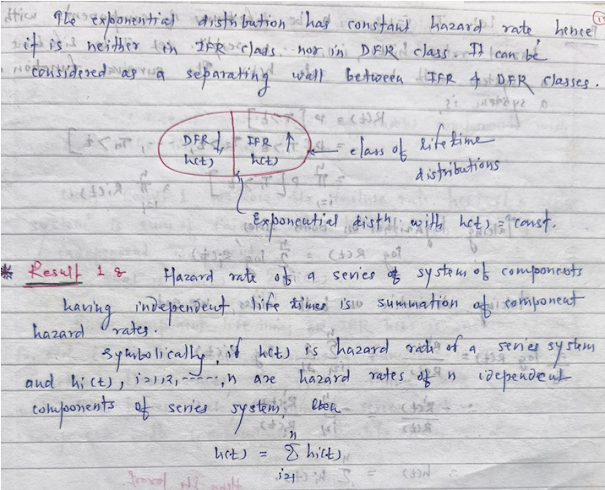 The exponential distribution has constant hazard rate, hence
it is neither in IFR class nor in DFR class. It can be
considered as a separating wall between IFR & DFR classes.
DFR ↓ IFR ↑
h(t) h(t)
class of lifetime
distributions
Exponential distn. with h(t) = const.
* Result 1 : Hazard rate of a series of system of components
having independent life times is summation of component
hazard rates.
Symbolically, if h(t) is hazard rate of a series system
and hi(t), i=1,2,-----,n are hazard rates of n idependent
components of series system, then
h(t) = Σ hi(t)
n
i=1